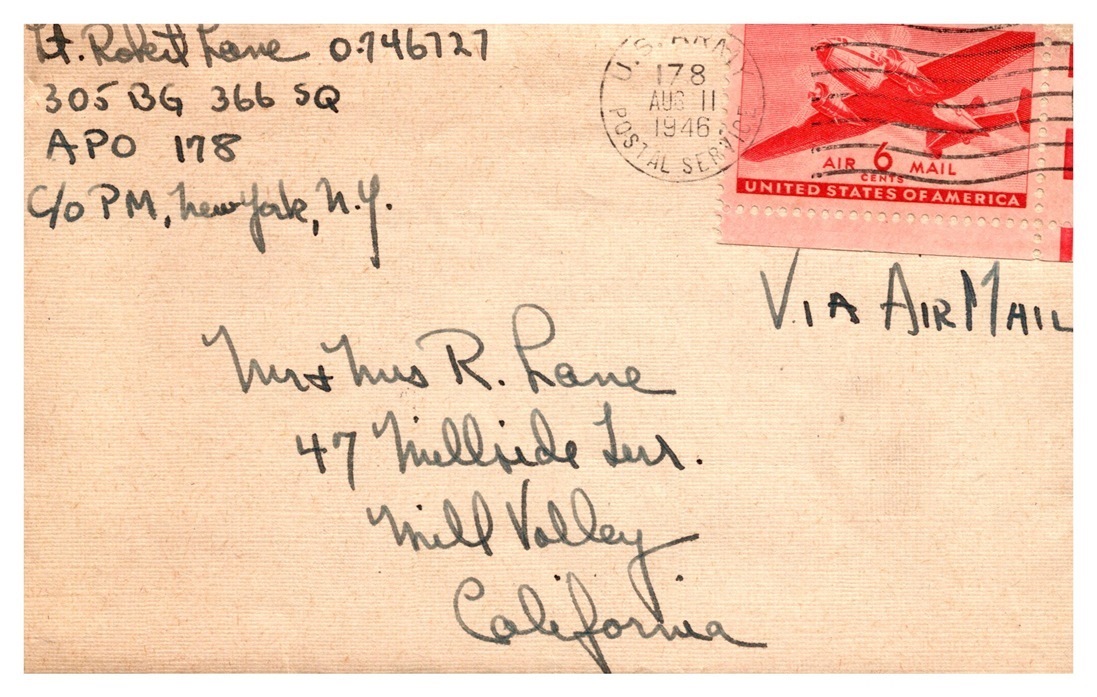 Lt. Robert Lane 0-746727
305 BG 366 SQ
APO 178
C/O PM, New York, N.Y.
U.S. ARMY
178
AUG 11
1946
POSTAL SERVICE
AIR 6 MAIL
CENTS
UNITED STATES OF AMERICA
VIA AIR MAIL
Mr + Mrs R. Lane
47 Millside Terr.
Mill Valley
California